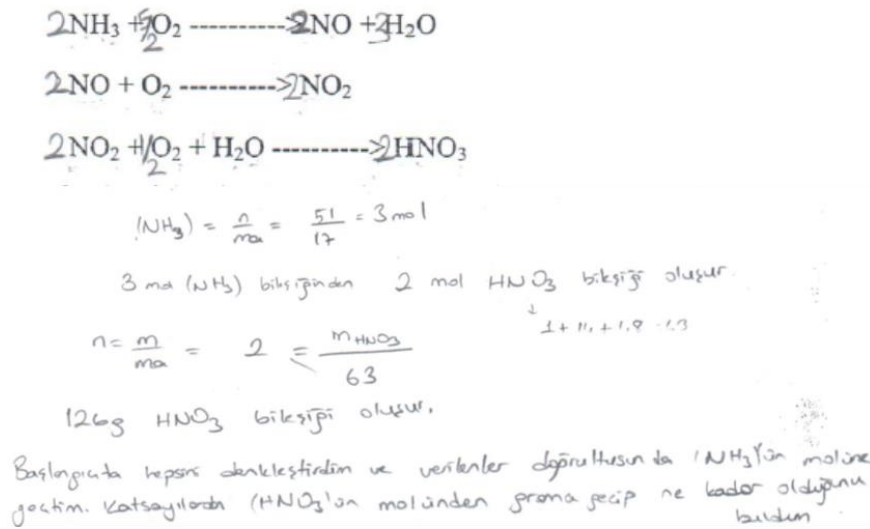 2NH₃ + 5/2 O₂ ----------> 2NO + 3H₂O
2NO + O₂ ----------> 2NO₂
2NO₂ + 1/2 O₂ + H₂O ----------> 2HNO₃
(NH₃) = n/ma = 51/17 = 3 mol
3 mol (NH₃) bileşiğinden 2 mol HNO₃ bileşiği oluşur.
n = m/ma = 2 = mHNO₃/63
126g HNO₃ bileşiği oluşur.
Başlangıçta hepsini denkleştirdim ve verilenler doğrultusunda (NH₃)'ün molüne
geçtim. Katsayılardan (HNO₃'ün molünden grama geçip ne kadar olduğunu
buldum